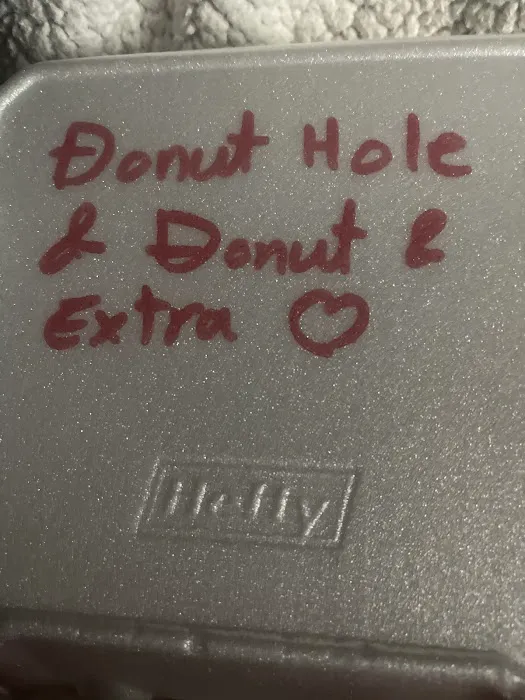 Donut Hole
& Donut &
Extra ♡
Hefty